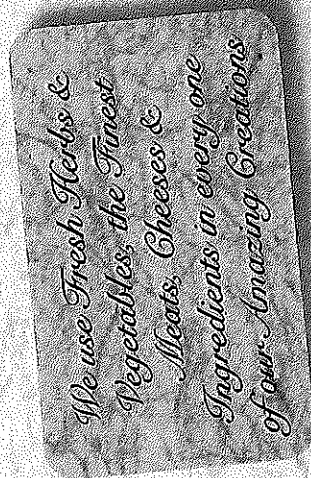 We use Fresh Herbs &
Vegetables, the Finest
Meats, Cheeses &
Ingredients in every one
of our Amazing Creations